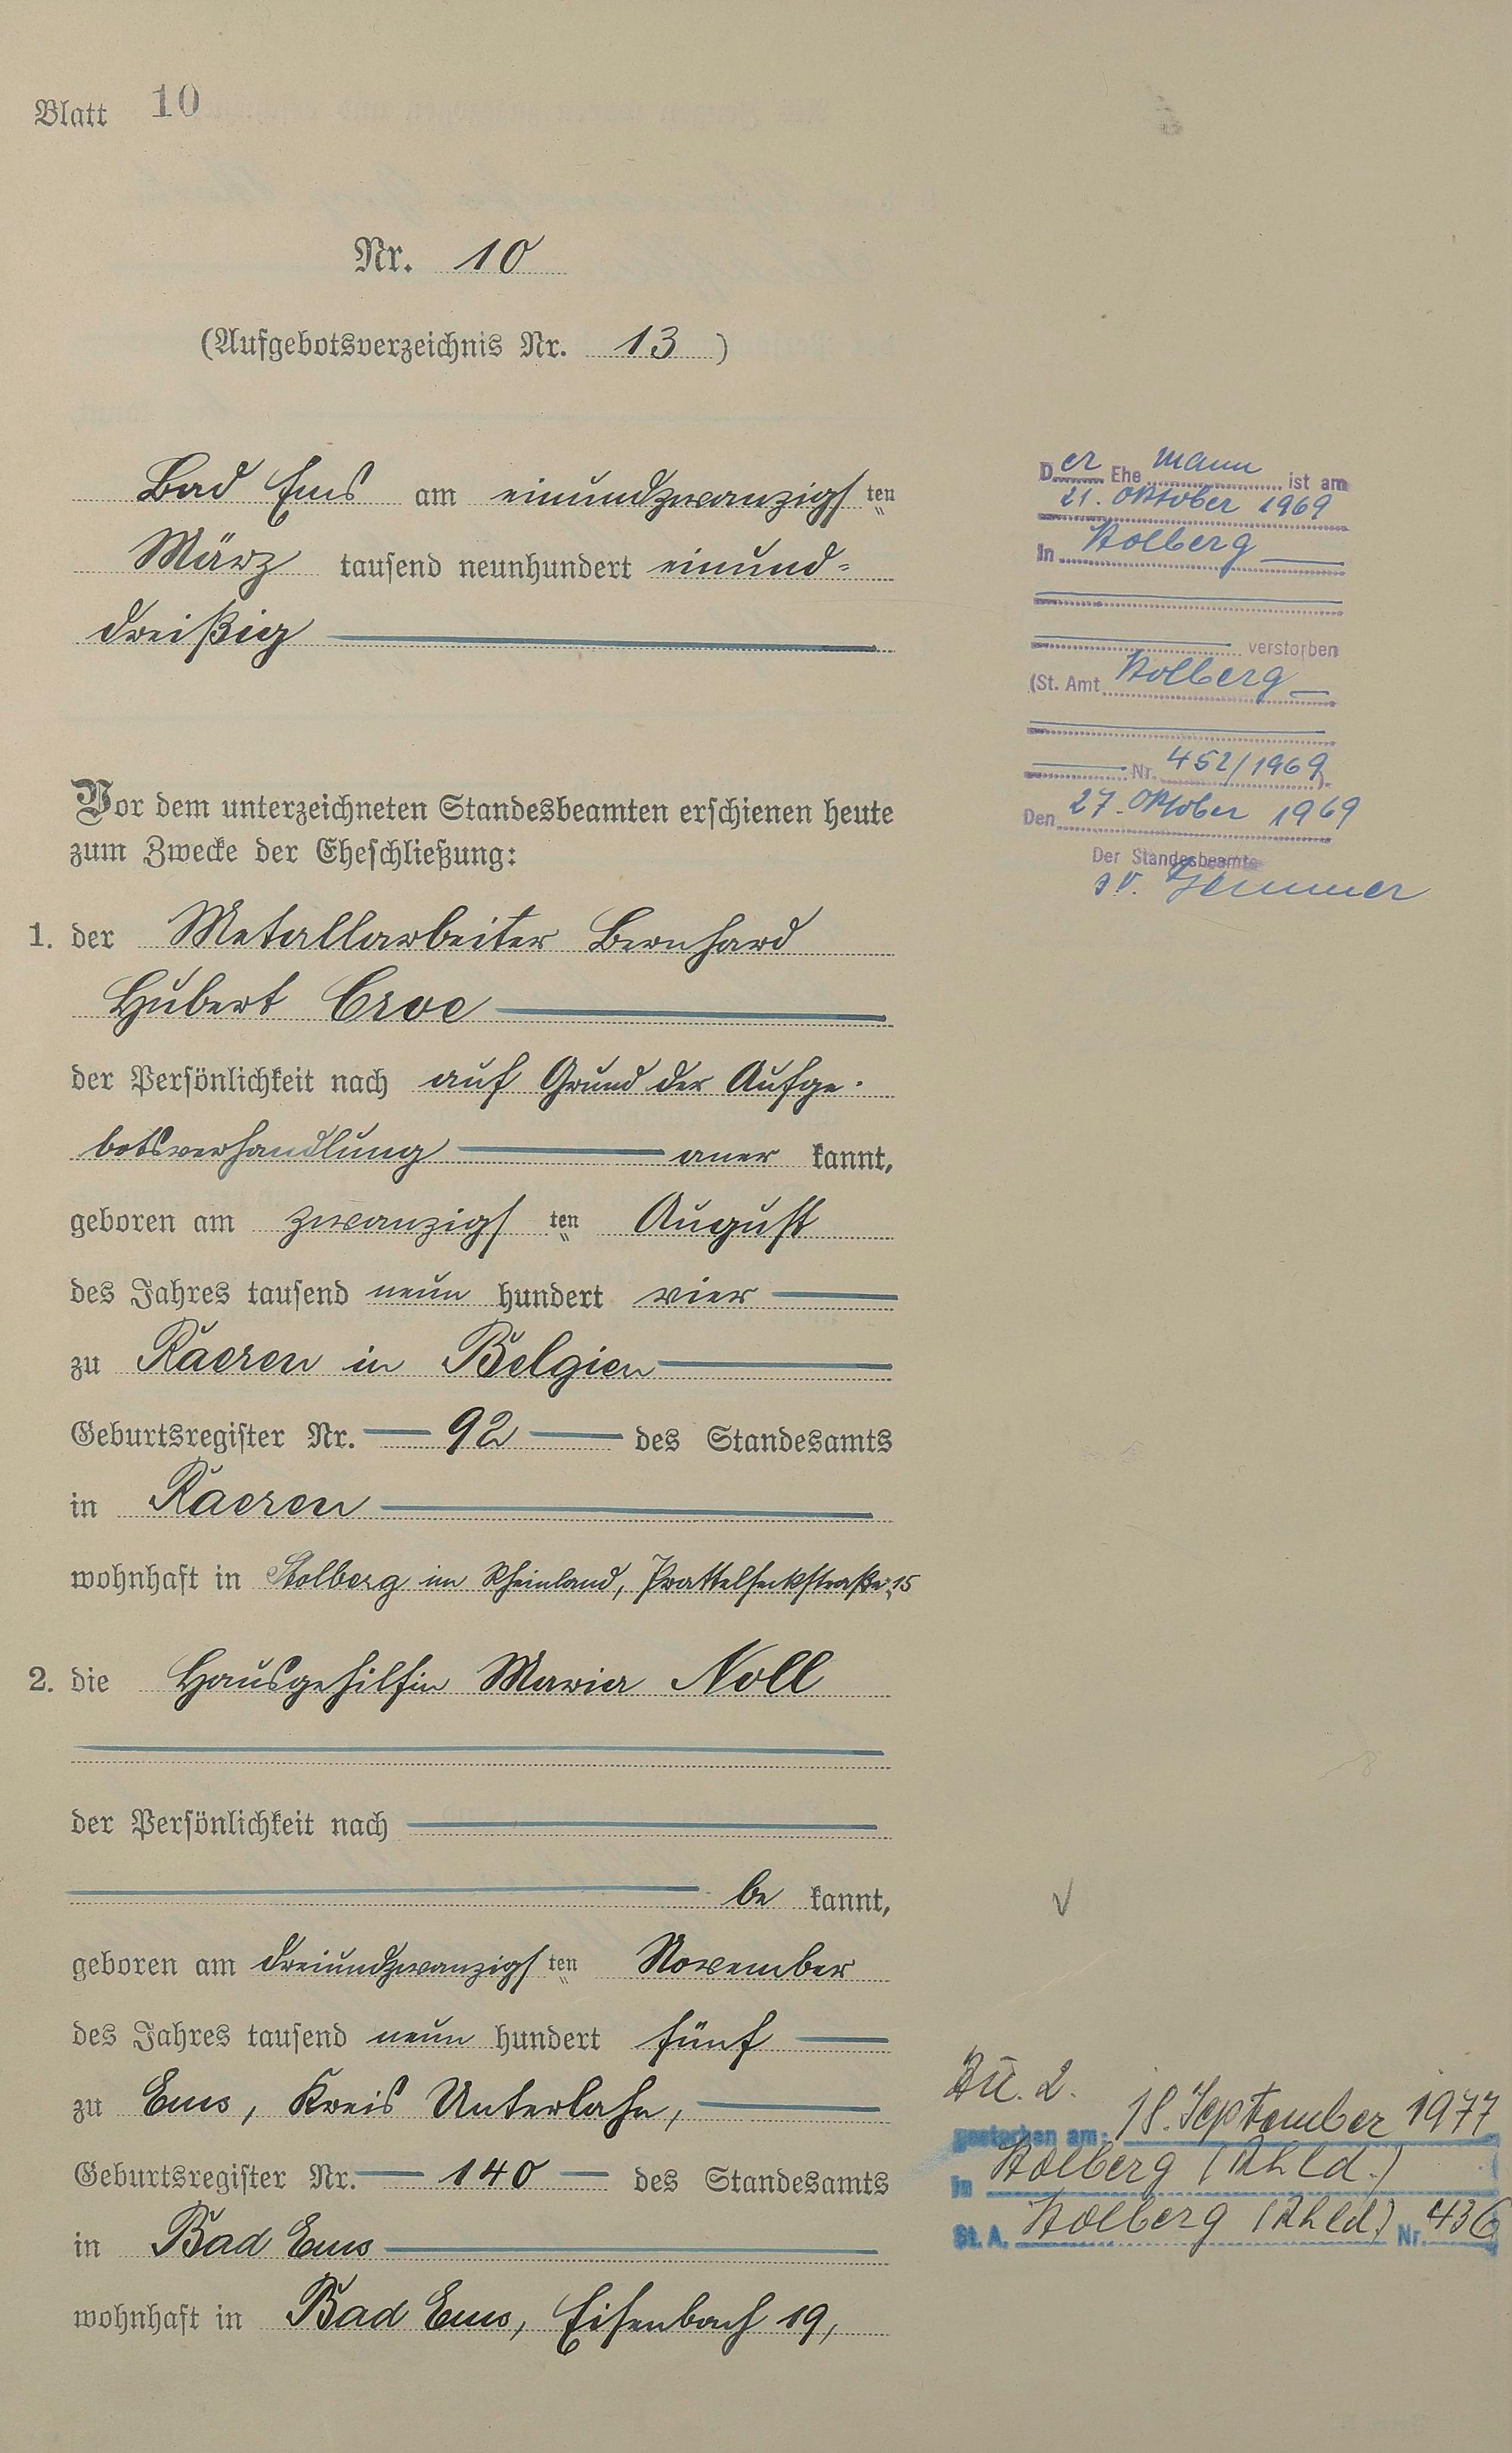 Blatt 10
Nr. 10
(Aufgebotsverzeichnis Nr. 13)
Bad Ems am einundzwanzigsten
März tausend neunhundert einund-
dreißig
Vor dem unterzeichneten Standesbeamten erschienen heute
zum Zwecke der Eheschließung:
1. der Metallarbeiter Bernhard
Hubert Croe
der Persönlichkeit nach auf Grund der Aufge-
botsverhandlung anerkannt,
geboren am zwanzigsten August
des Jahres tausend neun hundert vier
zu Raeren in Belgien
Geburtsregister Nr. 92 des Standesamts
in Raeren
wohnhaft in Stolberg im Rheinland, 15
2. die Hausgehilfin Maria Noll
der Persönlichkeit nach
bekannt,
geboren am dreiundzwanzigsten November
des Jahres tausend neun hundert fünf
zu Ems, Kreis Unterlahn,
Geburtsregister Nr. 140 des Standesamts
in Bad Ems
wohnhaft in Bad Ems, Eisenbach 19,
Der Ehemann ist am
21. Oktober 1969
in Stolberg
verstorben
(St. Amt Stolberg
Nr. 452/1969).
Den 27. Oktober 1969
Der Standesbeamte
Zu. 2.
gestorben am: 18. September 1977
in Stolberg (Rhld.)
St. A. Stolberg (Rhld.) Nr. 436